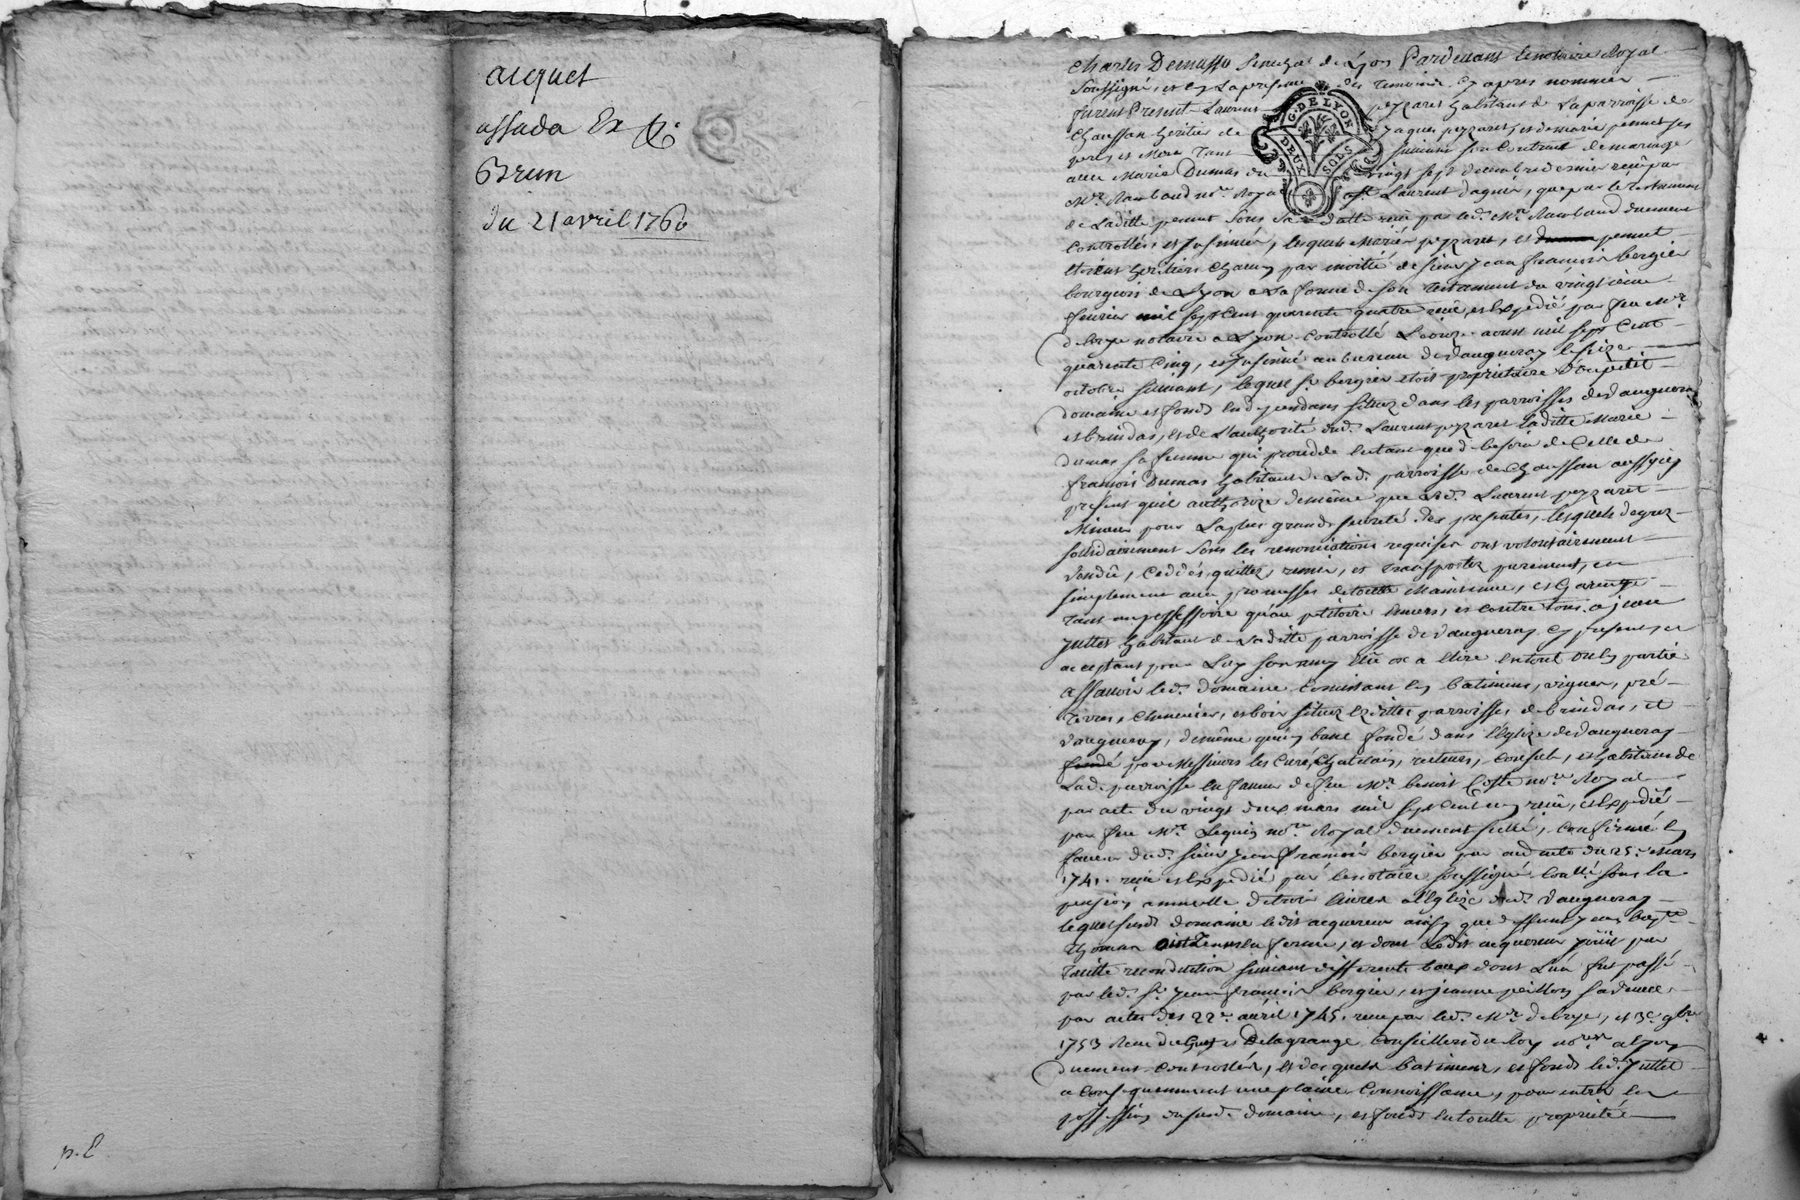 acquet
assada Ex
Brun
du 21 avril 1760
p. E
Charles Demasso Senechal de Lyon Pardevant le notaire Royal
Soussigné, et En La presence des temoins Cy apres nommés
furent Present Laurent peyzaret habitant de La parroisse de
Chaussan heritier de Jaques peyzaret et de marie pennet ses
pere et Mere tant suivant son Contract de mariage
avec Marie Dumas du vingt sept decembre dernier receu par
Mr. Rambaud nore. Royal a St. Laurent dagny, que par le testament
de Laditte pennet Sous Sa datte receu par led. Mr. Rambaud duement
Controllés et Insinués, lesquels Mariés peyzaret, et pennet
Etoient heritiers Chacun par moitié de sieur Jean francois bergier
bourgeois de Lyon a La forme de son testament du vingtieme
fevrier mil sept Cent quarente quatre receu et Expedié par feu Mr.
debrye notaire a Lyon Controllé Le onze aoust mil sept Cent
quarente Cinq, et Insinué au bureau de vaugneray le seize
octobre suivant, lequel sr. bergier etoit proprietaire D'un petit
domaine et fonds En dependans situez dans les parroisses de vaugneray
et brindas, et de L'authorité dud. Laurent peyzaret laditte Marie
dumas sa femme qui procede Entant que de besoin de Celle de
francois Dumas habitant de Lad. parroisse de Chaussan aussy icy
present qui authorize de même que led. Laurent peyzaret
Mineur pour La plus grande seureté des presentes, lesquels de gré
sollidairement Sous les renonciations requises ont volontairement
vendû, Ceddés, quittez, remis, et transportez purement, et
simplement avec promesses de toutte Maintenue, et Garentye
tant au possessoire qu'au petitoire Envers, et Contre tous, a jean
Juttet habitant de Laditte parroisse de vaugneray Cy present et
acceptant pour Luy son amy Elû ou a Elire En tout ou En partie
assavoir led. domaine Consistant En batimens, vignes, pré
terres, Chenevier, et bois situez Ezdittes parroisses de brindas, et
vaugneray, de même qu'un banc fondé dans l'Eglize de vaugneray
par Messieurs les Curé, Chatelain, recteurs, Consuls, et habitans de
Lad. parroisse En faveur de feu Mr. benoit Coste nore. Royal
par acte du vingt deux mars mil sept Cent receu, et Expedié
par feu Mr. Lequin nore. Royal duement scellé, Confirmé En
faveur dud. sieur Jean francois bergier par acte du 25e. Mars
1741. receu et Expedié par le notaire soussigné Conllé. sous la
pension annuelle de trois livres a l'Eglize dud. vaugneray
lequel susd. domaine ledit acquereur ainsy que deffunt Jean bapte.
Thomas ont tenus En ferme, et dont Ledit acquereur jouit par
tacitte reconduction suivant differents baux dont L'un fut passé
par led. sr. Jean francois bergier, et jeanne peillon sa veuve
par actes des 22e. avril 1745. receu par led. Mr. debrye, et 3e. 9bre.
1753 Receu Delagrange Conseillers du Roy nores. a Lyon
duement Controllés, et desquels batimens, et fonds led. Juttet
a Consequemment une plaine Connoissance, pour entrer En
possession dususd. domaine, et fonds En toutte proprieté
G. DE LYON
DEUX SOLS